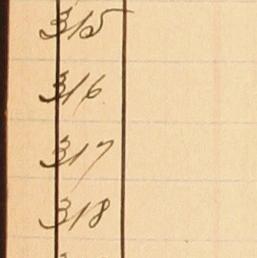 315
316
317
318